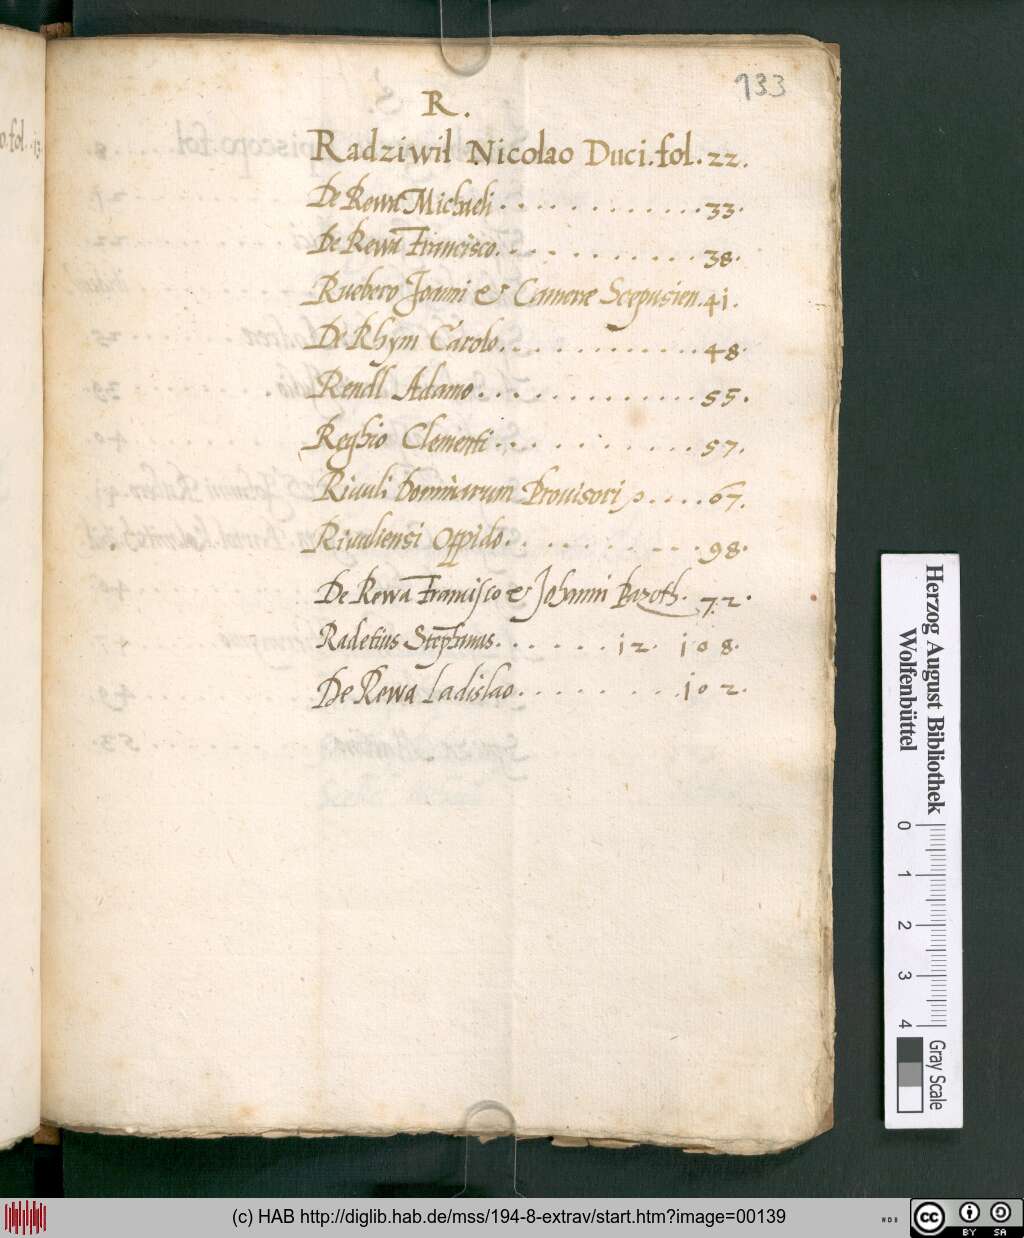 133
R.
Radziwił Nicolao Duci. fol. 22.
De Rewa Michaeli . . . . . . . . . . . . 33.
De Rewa Francisco. . . . . . . . . . . . 38.
Ruebero Joanni & Cameræ Scepusien. 41.
De Rhym Carolo. . . . . . . . . . . . . 48.
Rendl Adamo . . . . . . . . . . . . . 55.
Reghio Clementi . . . . . . . . . . . 57.
Riuuli Dominarum Prouisori . . . . 67.
Riuuliensi Oppido. . . . . . . . . . 98.
De Rewa Francisco & Johanni Baroth. 72.
Radetius Stephanus. . . . . . . 12. 108.
De Rewa Ladislao. . . . . . . . . . 102.
Herzog August Bibliothek
Wolfenbüttel
0 1 2 3 4
Gray Scale
(c) HAB http://diglib.hab.de/mss/194-8-extrav/start.htm?image=00139
WDB
cc BY SA